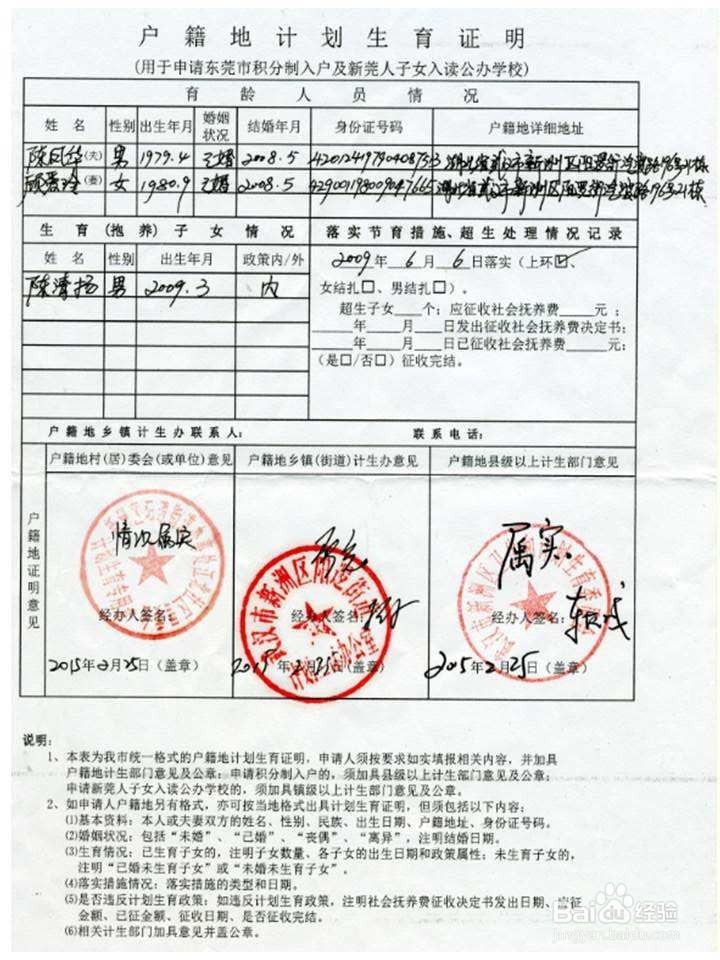 户籍地计划生育证明
(用于申请东莞市积分制入户及新莞人子女入读公办学校)
育龄人员情况
姓名 性别 出生年月 婚姻状况 结婚年月 身份证号码 户籍地详细地址
(夫) 男 1979.4 已婚 2008.5
(妻) 女 1980.9 已婚 2008.5
生育(抱养)子女情况 落实节育措施、超生处理情况记录
姓名 性别 出生年月 政策内/外 2009年6月6日落实(上环☑、
陈清扬 男 2009.3 内 女结扎□、男结扎□)。
超生子女____个;应征收社会抚养费____元;
____年____月____日发出征收社会抚养费决定书;
____年____月____日已征收社会抚养费____元;
(是□/否□)征收完结。
户籍地乡镇计生办联系人: 联系电话:
户籍地证明意见
户籍地村(居)委会(或单位)意见 户籍地乡镇(街道)计生办意见 户籍地县级以上计生部门意见
情况属实 属实 属实.
经办人签名: 经办人签名: 经办人签名:
2015年2月25日(盖章) 2015年2月25日(盖章) 2015年2月25日(盖章)
说明:
1、本表为我市统一格式的户籍地计划生育证明，申请人须按要求如实填报相关内容，并加具
户籍地计生部门意见及公章；申请积分制入户的，须加具县级以上计生部门意见及公章；
申请新莞人子女入读公办学校的，须加具镇级以上计生部门意见及公章。
2、如申请人户籍地另有格式，亦可按当地格式出具计划生育证明，但须包括以下内容:
(1)基本资料：本人或夫妻双方的姓名、性别、民族、出生日期、户籍地址、身份证号码。
(2)婚姻状况：包括“未婚”、“已婚”、“丧偶”、“离异”，注明结婚日期。
(3)生育情况：已生育子女的，注明子女数量、各子女的出生日期和政策属性；未生育子女的，
注明“已婚未生育子女”或“未婚未生育子女”。
(4)落实措施情况：落实措施的类型和日期。
(5)是否违反计划生育政策：如违反计划生育政策，注明社会抚养费征收决定书发出日期、应征
金额、已征金额、征收日期、是否征收完结。
(6)相关计生部门加具意见并盖公章。
Baidu经验
jingyan.baidu.com